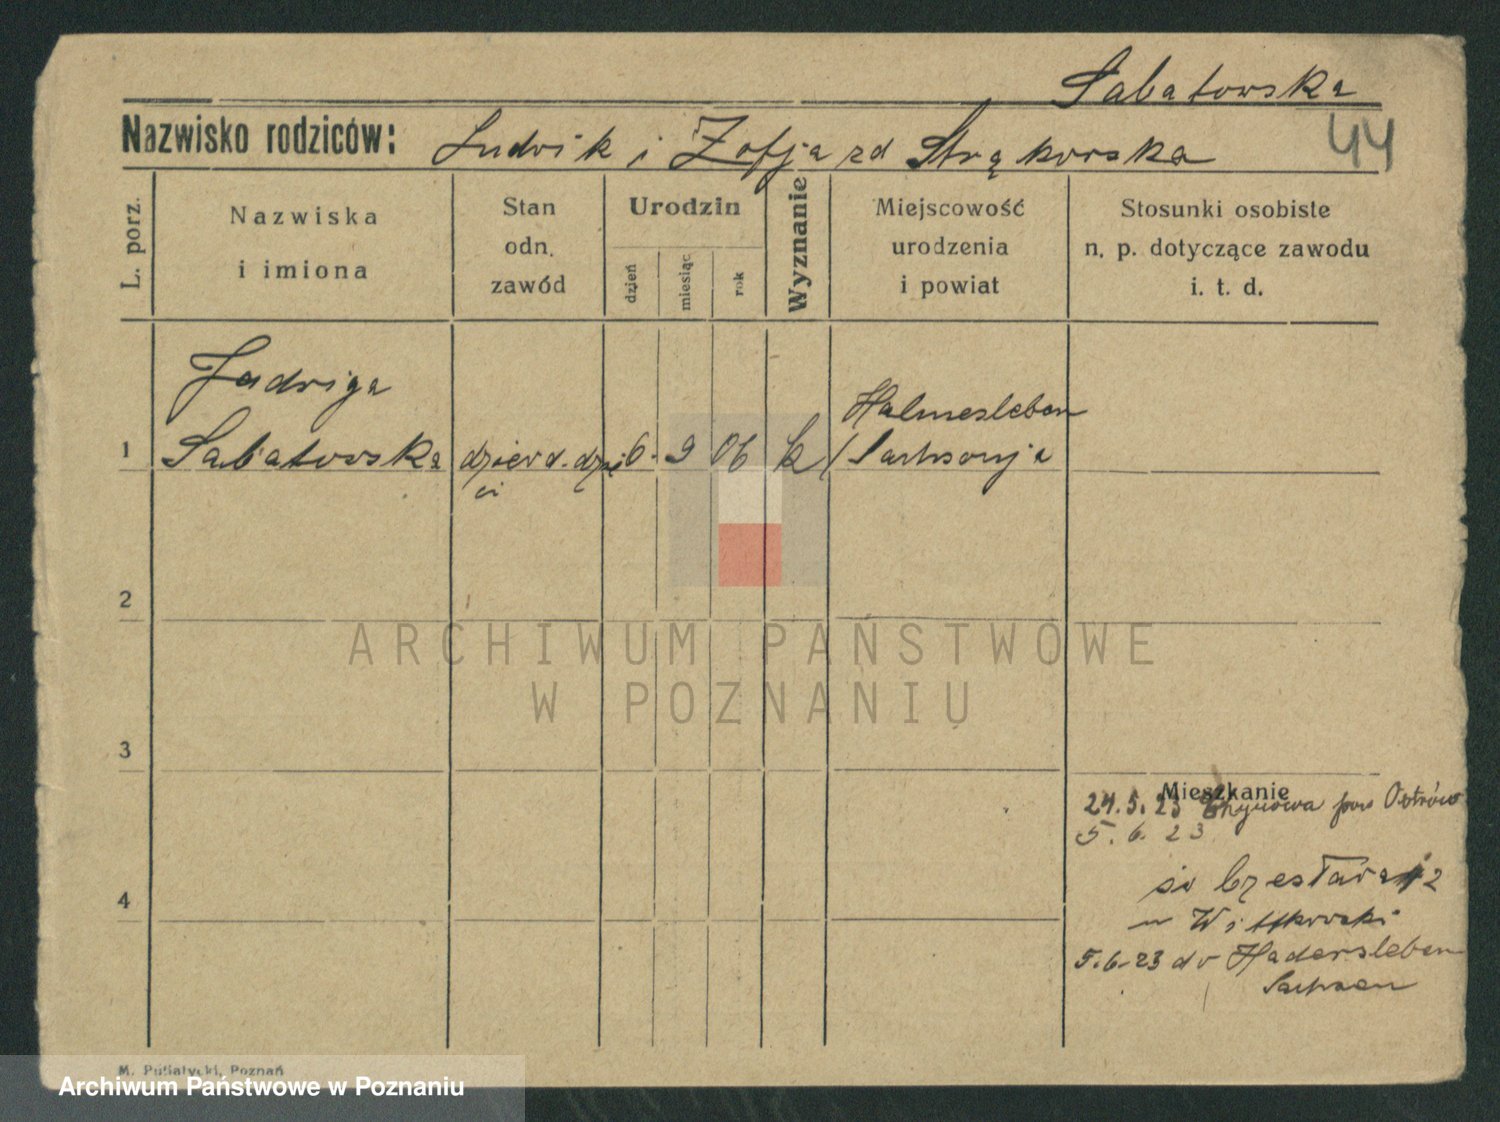 Sabatowska
Nazwisko rodziców: Ludwik i Zofja zd Strąkowska
44
L. porz.
Nazwiska
i imiona
Stan
odn.
zawód
Urodzin
dzień
miesiąc
rok
Wyznanie
Miejscowość
urodzenia
i powiat
Stosunki osobiste
n. p. dotyczące zawodu
i. t. d.
1
Jadwiga
Sabatowska
6. 9 06
k
Halmesleben
Sachsonja
2
3
4
Mieszkanie
24.5.23 Chynowa pow Ostrów
5.6.23
12
5.6.23 do Hadersleben
Sachsen
M. Putiatycki, Poznań
ARCHIWUM PAŃSTWOWE
W POZNANIU
Archiwum Państwowe w Poznaniu